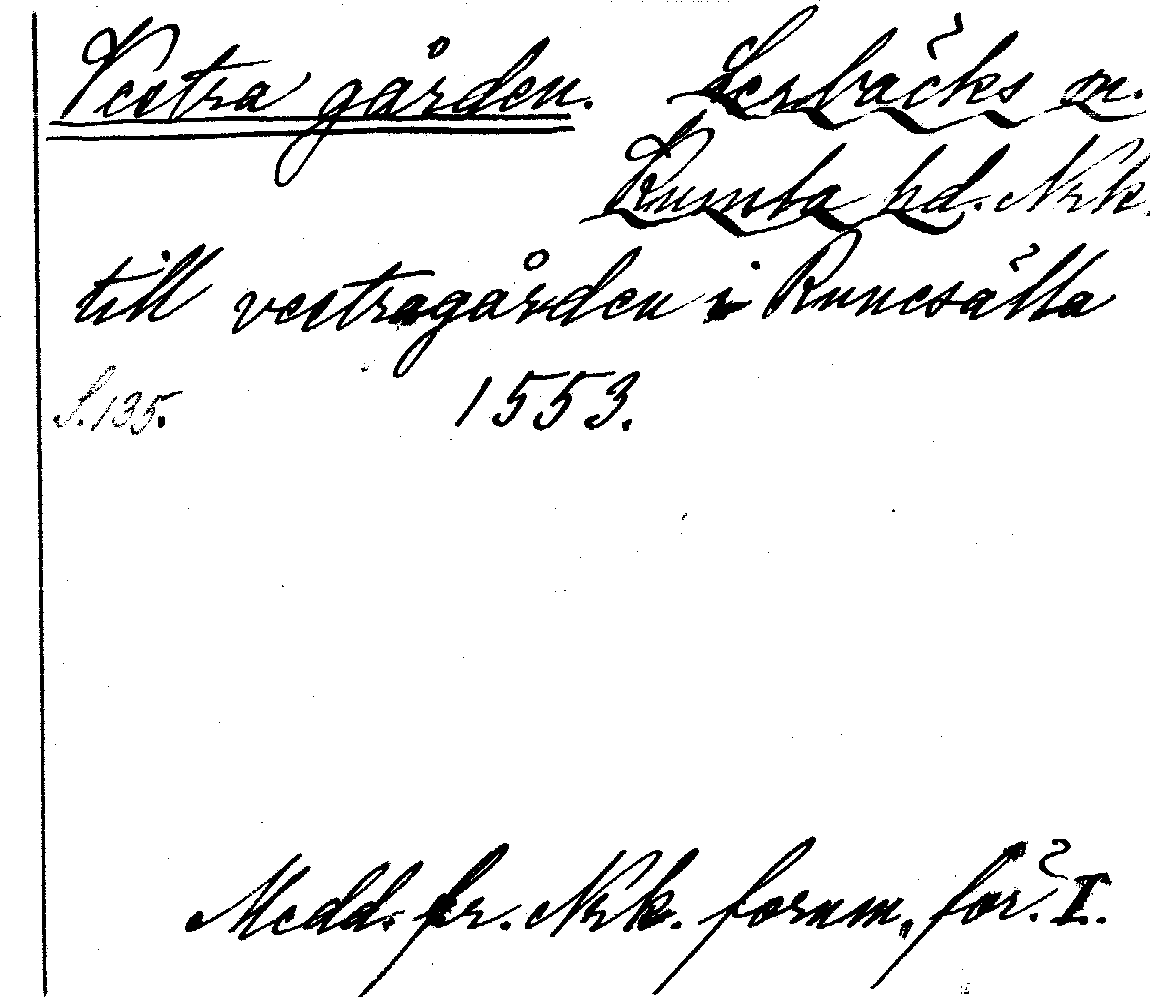 Vestra gården. Lerbäcks sn.
Kumla hd. Nrk.
till vestragården i Runesätta
S. 135. 1553.
Medd. fr. Nrk. fornm. för. I.